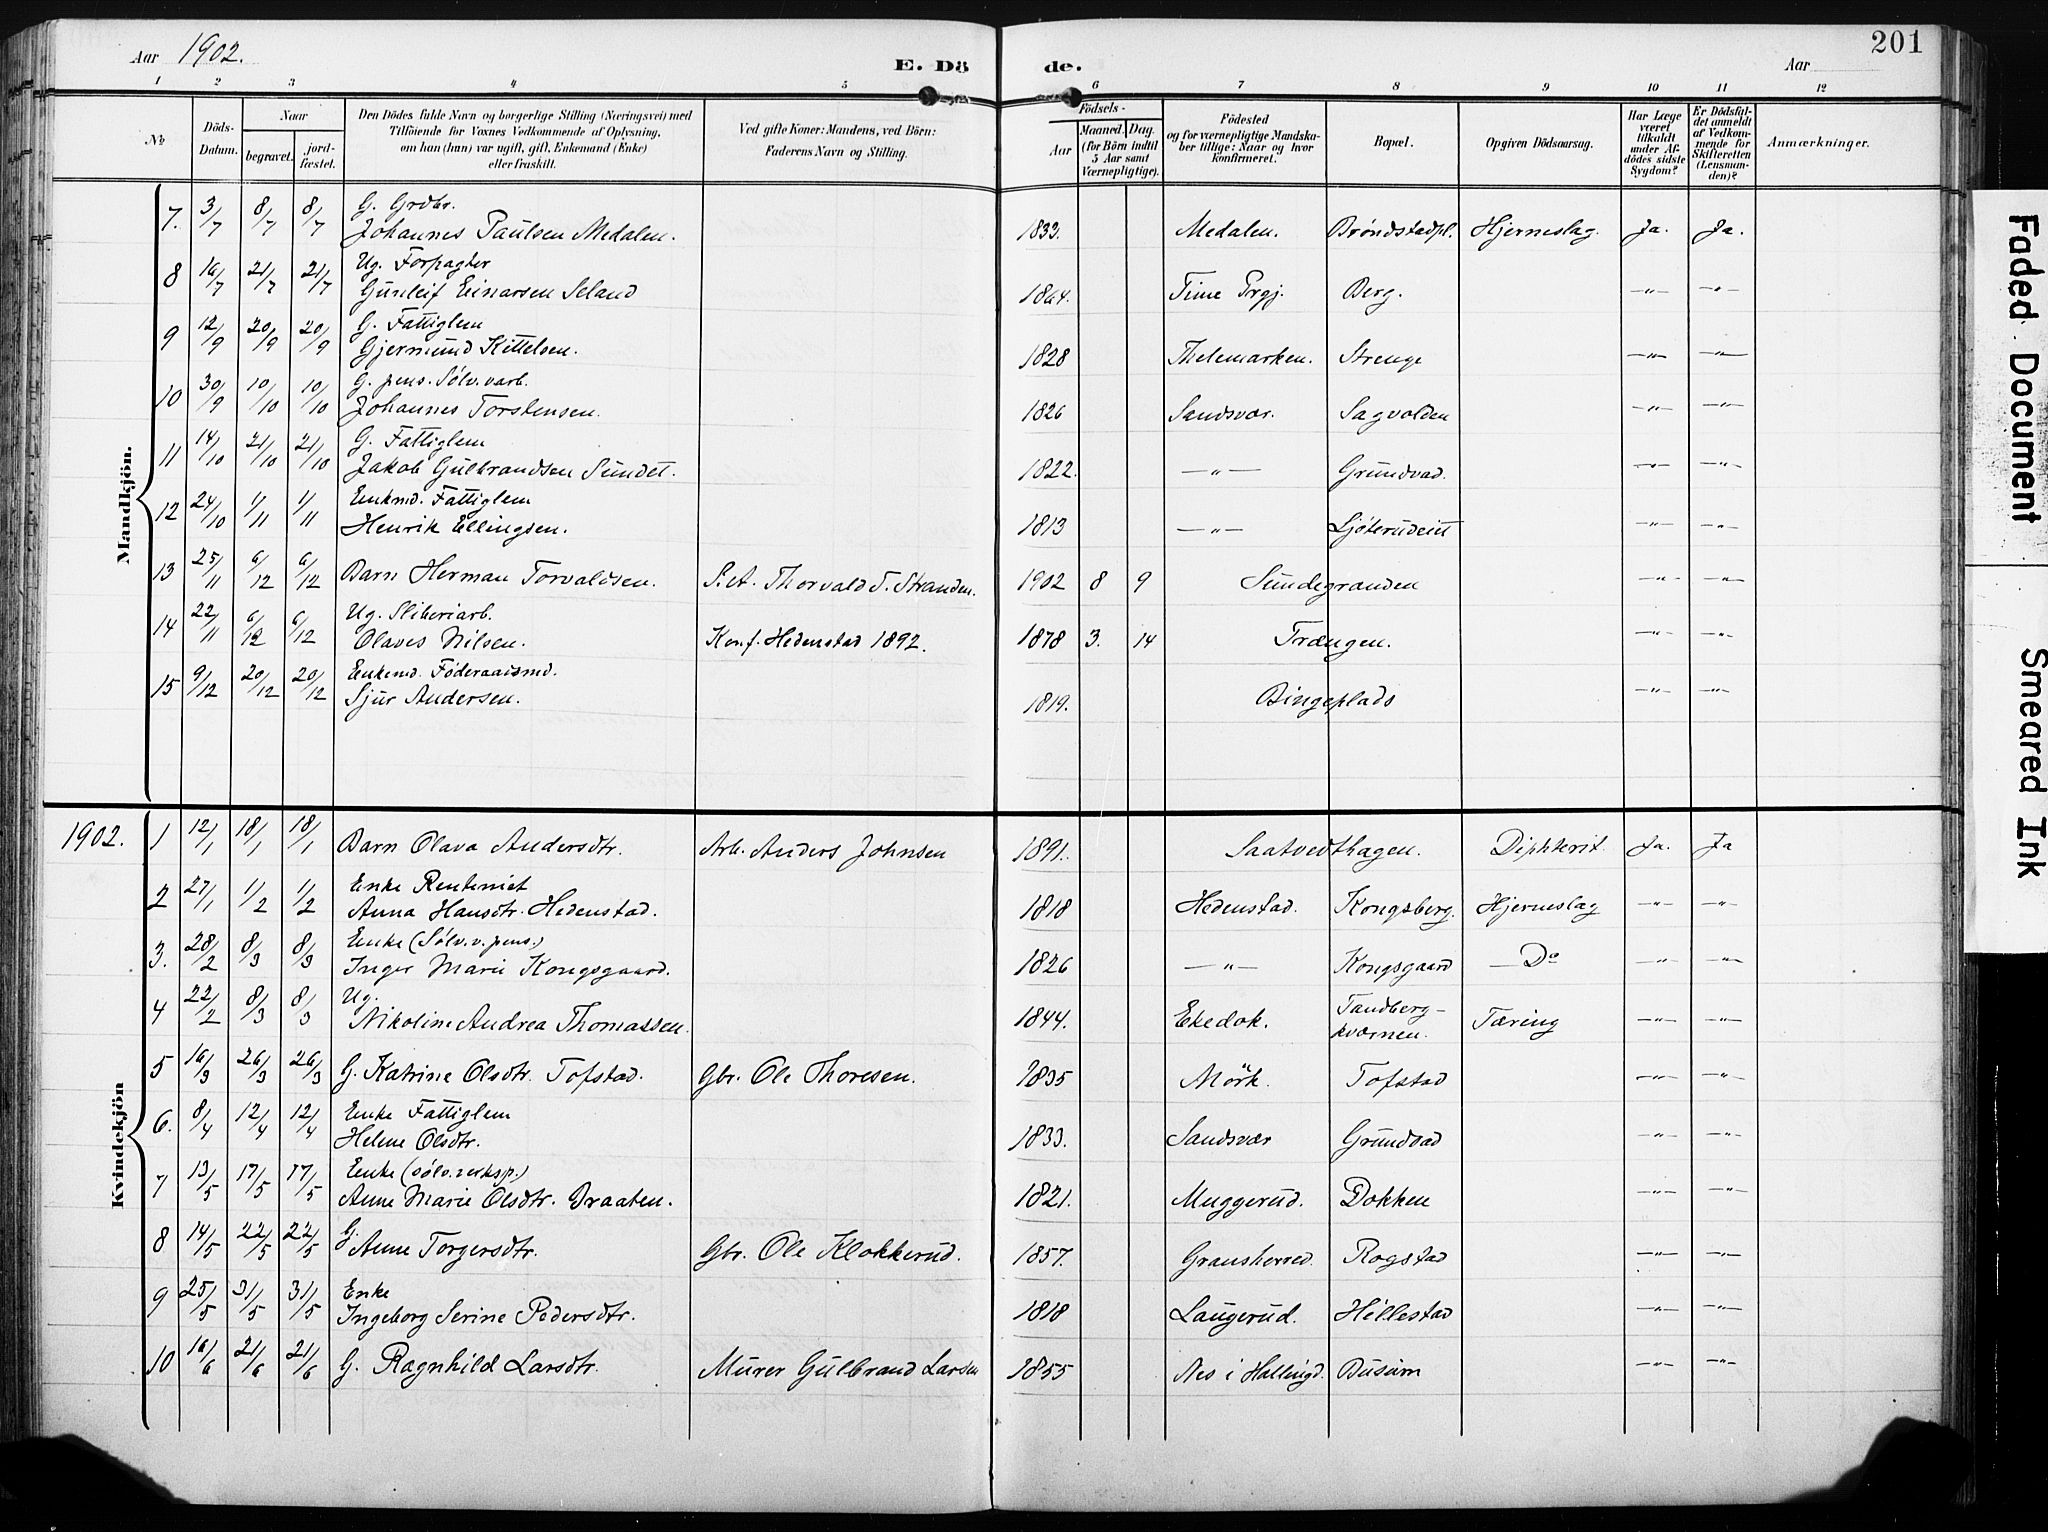 Aar 1902. E. Dö de. Aar 201
1 2 3 4 5 6 7 8 9 10 11 12
No Döds-Datum. Naar begravet. jordfæstet. Den Dödes fulde Navn og borgerlige Stilling (Næringsvei) med Tilföiende for Voxnes Vedkommende af Oplysning, om han (hun) var ugift, gift, Enkemand (Enke) eller fraskilt. Ved gifte Koner: Mandens, ved Börn: Faderens Navn og Stilling. Födsels- Aar Maaned. Dag. (for Börn indtil 5 Aar samt Værnepligtige). Födested og for værnepligtige Mandskaber tillige: Naar og hvor konfirmeret. Bopæl. Opgiven Dödsaarsag. Har Læge været tilkaldt under Afdödes sidste Sygdom? Er Dödsfaldet anmeldt af Vedkommende for Skifteretten (Lensmanden)? Anmærkninger.
Mandkjön.
G. Grdbr.
7. 3/7 8/7 8/7 Johannes Paulsen Medalen. 1833. Medalen. Bröndstadpl. Hjerneslag. Ja. Ja.
Ug. Forpagter
8 16/7 21/7 21/7 Gunleif Einarsen Seland 1864. Time Prgj. Berg. —"— —"—
G. Fattiglem
9 12/9 20/9 20/9 Gjermund Kittelsen. 1828 Thelemarken. Strenge —"— —"—
G. pens. Sølv.varb.
10 30/9 10/10 10/10 Johannes Torstensen. 1826 Sandsvær. Sagvolden —"— —"—
G. Fattiglem
11 14/10 21/10 21/10 Jakob Gulbrandsen Sundet. 1822. —"— Grundvad. —"— —"—
Enkmd. Fattiglem
12 24/10 1/11 1/11 Henrik Ellingsen. 1813 —"— —"— —"—
13 25/11 6/12 6/12 Barn Herman Torvaldsen. S.A. Thorvald T. Stranden. 1902 8 9 Sundegranden —"— —"—
Ug. Sliberiarb.
14 22/11 6/12 6/12 Olaves Nilsen. Konf. Hedenstad 1892. 1878 3. 14 Trængen. —"— —"—
Enkemd. Føderaadsmd.
15 9/12 20/12 20/12 Sjur Andersen. 1819. Bingeplads —"— —"—
Kvindekjön
1902. 1 12/1 18/1 18/1 Barn Olava Andersdtr. Arb. Anders Johnsen 1891. Saatvedthagen. Diphterit. Ja. Ja
Enke Rentenist
2 27/1 1/2 1/2 Anna Hansdtr. Hedenstad. 1818 Hedenstad. Kongsberg. Hjerneslag —"— —"—
Enke (Sølv.v.pens.)
3. 28/2 8/3 8/3 Inger Marie Kongsgaard. 1826 —"— Kongsgaard —Do —"— —"—
Ug.
4 22/2 8/3 8/3 Nikoline Andrea Thomassen. 1844. Ekedok. Tandberg-kværnen. Tæring —"— —"—
5 16/3 26/3 26/3 G. Katrine Olsdtr. Tofstad. Gbr. Ole Thoresen. 1835 Mörk. Tofstad —"— —"—
Enke Fattiglem
6. 8/4 12/4 12/4 Helene Olsdtr. 1833. Sandsvær Grundvad —"— —"—
Enke (sølv.verksp.)
7 13/5 17/5 17/5 Anne Marie Olsdtr. Braaten. 1821. Muggerud. Dokken —"— —"—
G.
8 14/5 22/5 22/5 Anne Torgersdtr. Gbr. Ole Klokkerud. 1857. Gransherred. Rogstad —"— —"—
Enke
9 25/5 31/5 31/5 Ingeborg Serine Pedersdtr. 1818 Laugerud. Hellestad —"— —"—
10 16/6 21/6 21/6 G. Ragnhild Larsdtr. Murer Gulbrand Larsen 1855 Nes i Hallingd. Busum —"— —"—
Faded Document
Smeared Ink